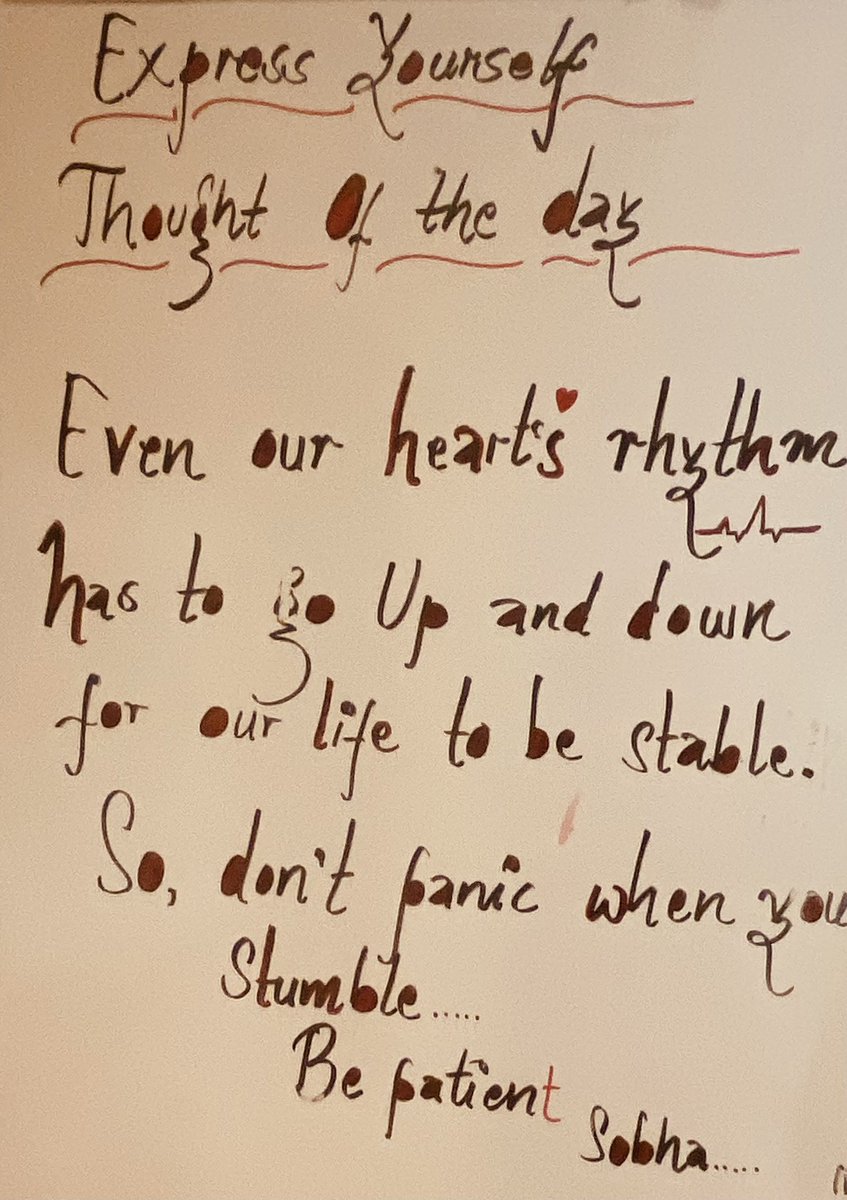 Express Yourself
Thought Of the day
Even our heart's rhythm
has to go Up and down
for our life to be stable.
So, don't panic when you
Stumble.....
Be patient
Sobha.....